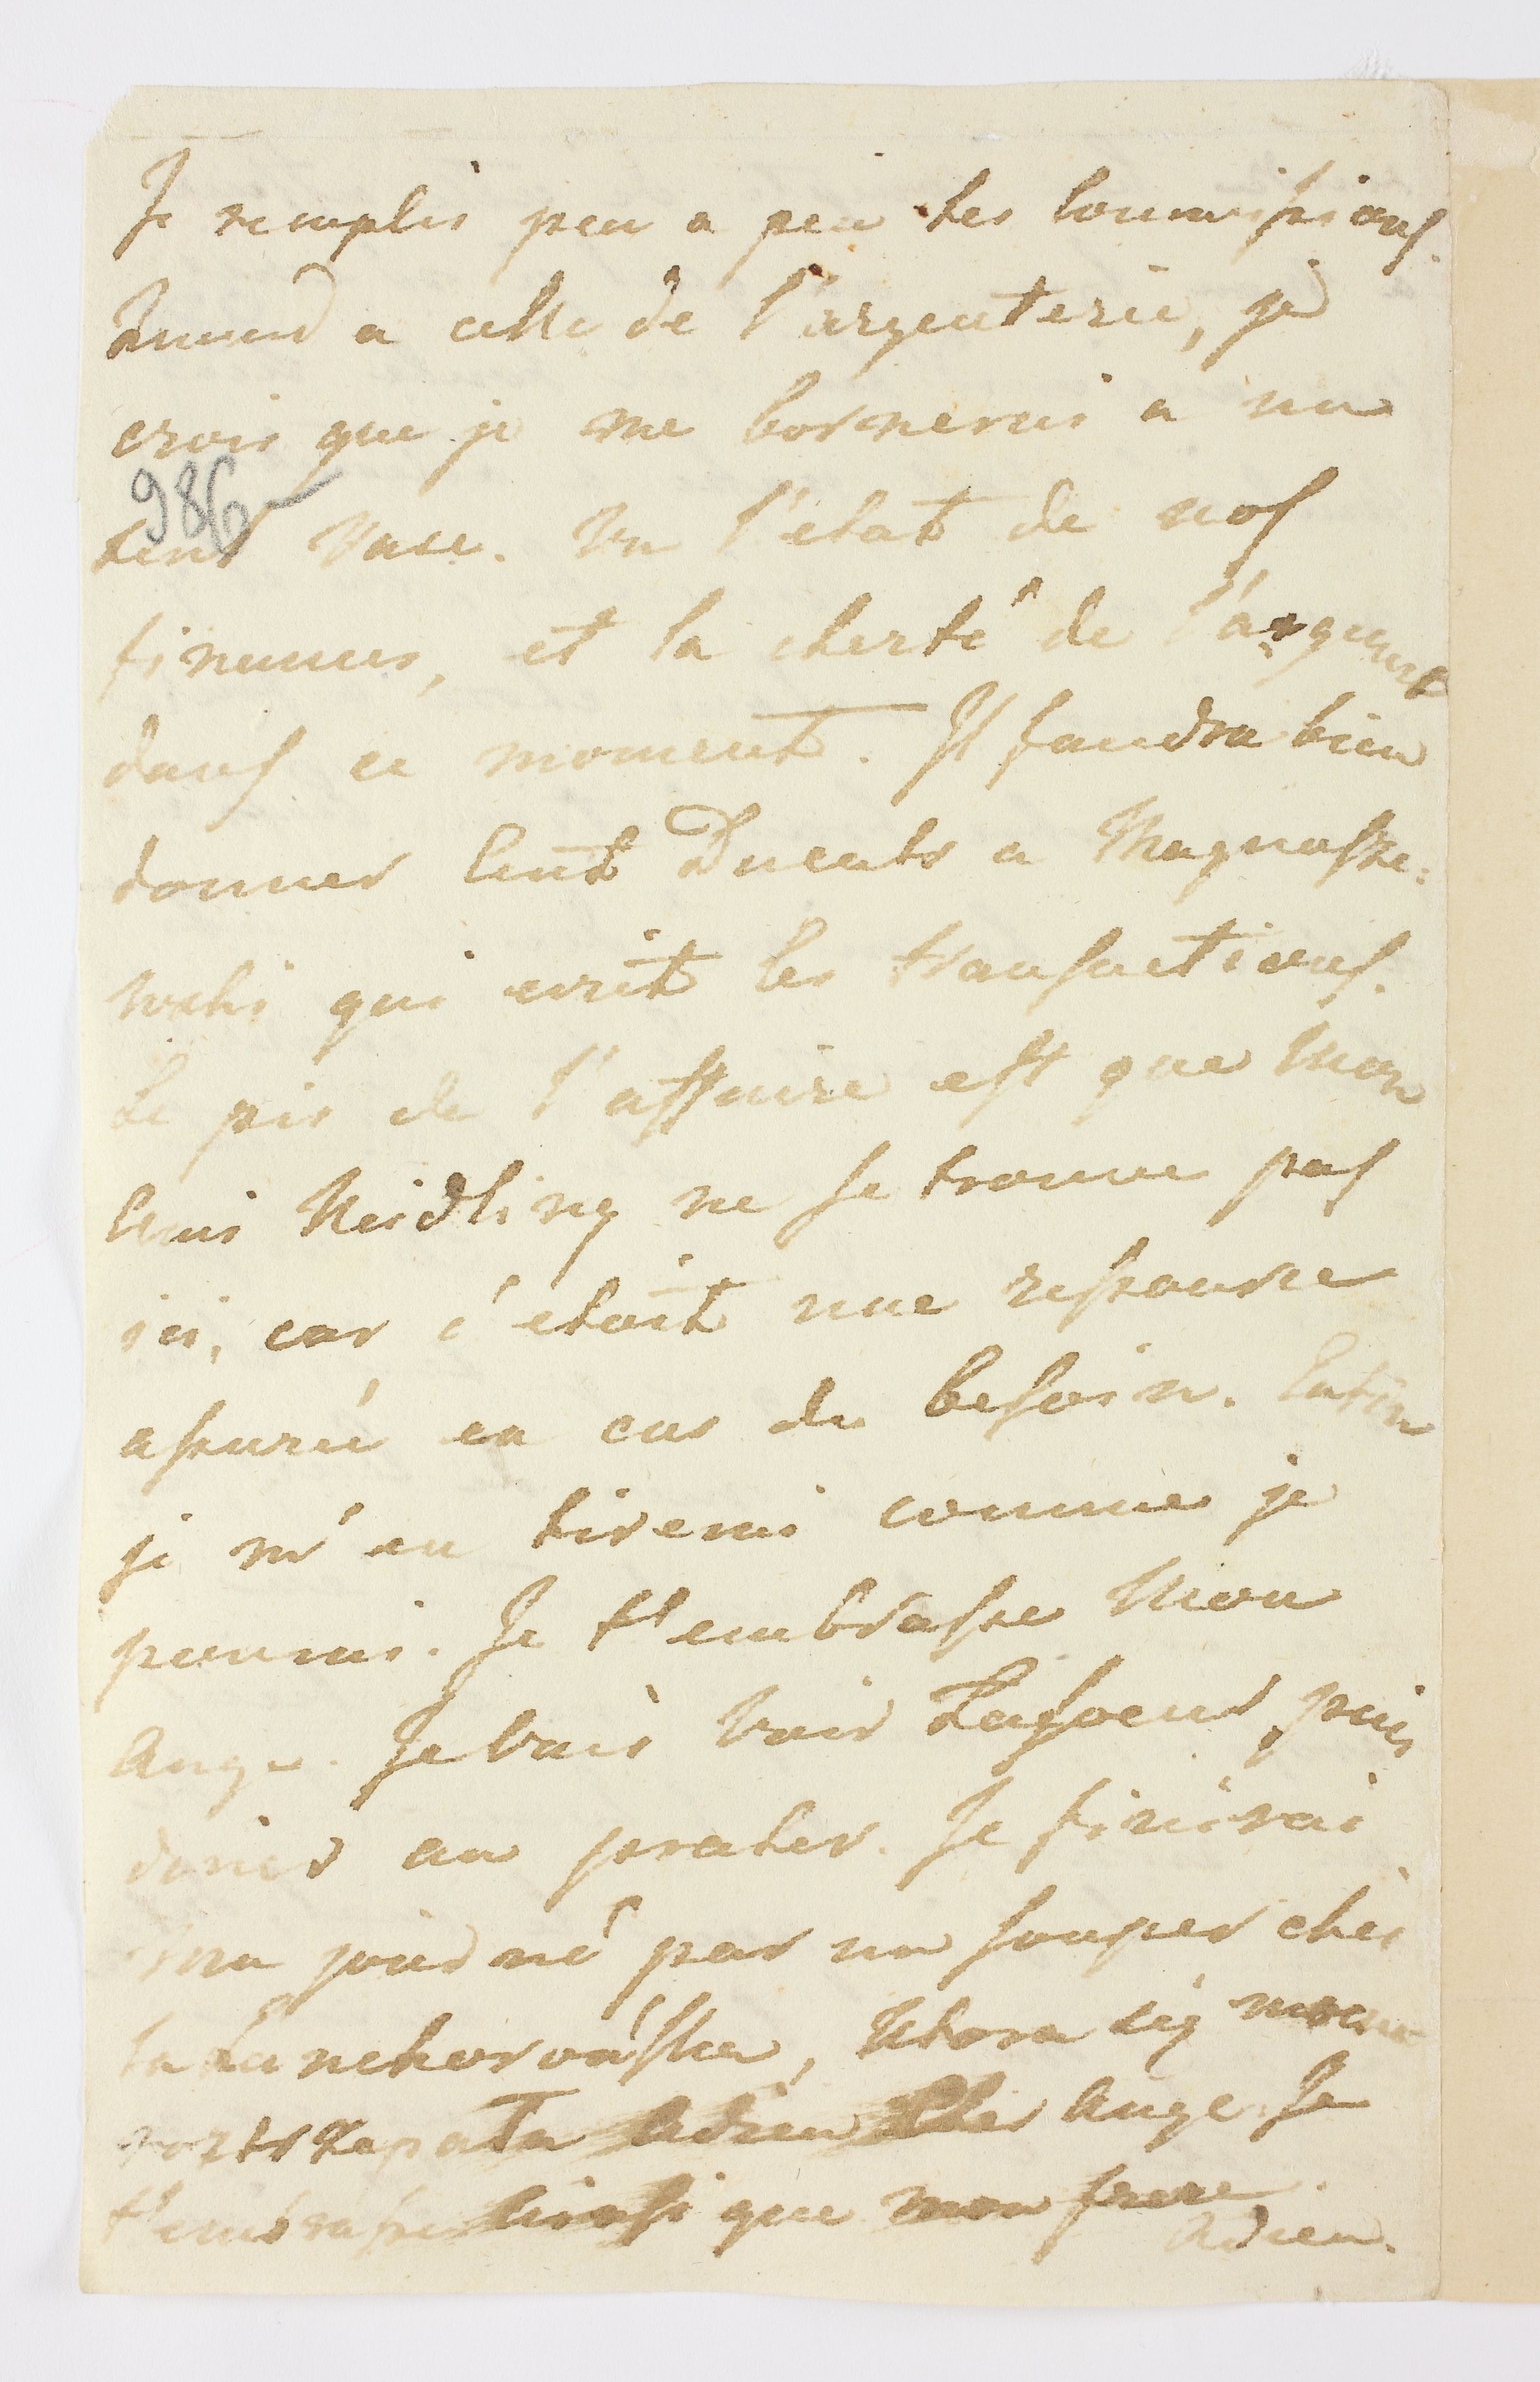 Je remplis peu a peu tes Commissions.
Quand a celle de l'argenterie, je
crois que je me bornerai a un
986
seul Vase. Vu l'etat de nos
finances, et la cherté de l'argent
dans ce moment. Il faudra bien
donner Cent Ducats a Magnusze:
wski qui ecrit les transactions.
Le pis de l'affaire est que Mon
Ami Neidling ne se trouve pas
ici, car c'etoit une ressource
assurée en cas de besoin. Enfin
je m'en tirerai comme je
pourrai. Je t'embrasse Mon
Ange. Je Vais Voir puis
diner au prater. Je finirai
ma journé par un souper chez
la Lanckorońska, Ktora się
Adieu Cher Ange. Je
t'embrasse ainsi que mon frere.
Adieu.